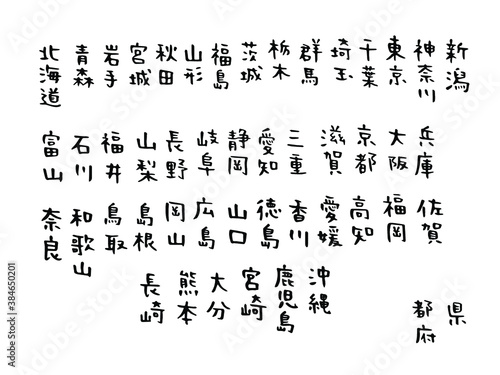 北海道
青森
岩手
宮城
秋田
山形
福島
茨城
栃木
群馬
埼玉
千葉
東京
神奈川
新潟
富山
石川
福井
山梨
長野
岐阜
静岡
愛知
三重
滋賀
京都
大阪
兵庫
奈良
和歌山
鳥取
島根
岡山
広島
山口
徳島
香川
愛媛
高知
福岡
佐賀
長崎
熊本
大分
宮崎
鹿児島
沖縄
都府
県
Adobe Stock
#384650201